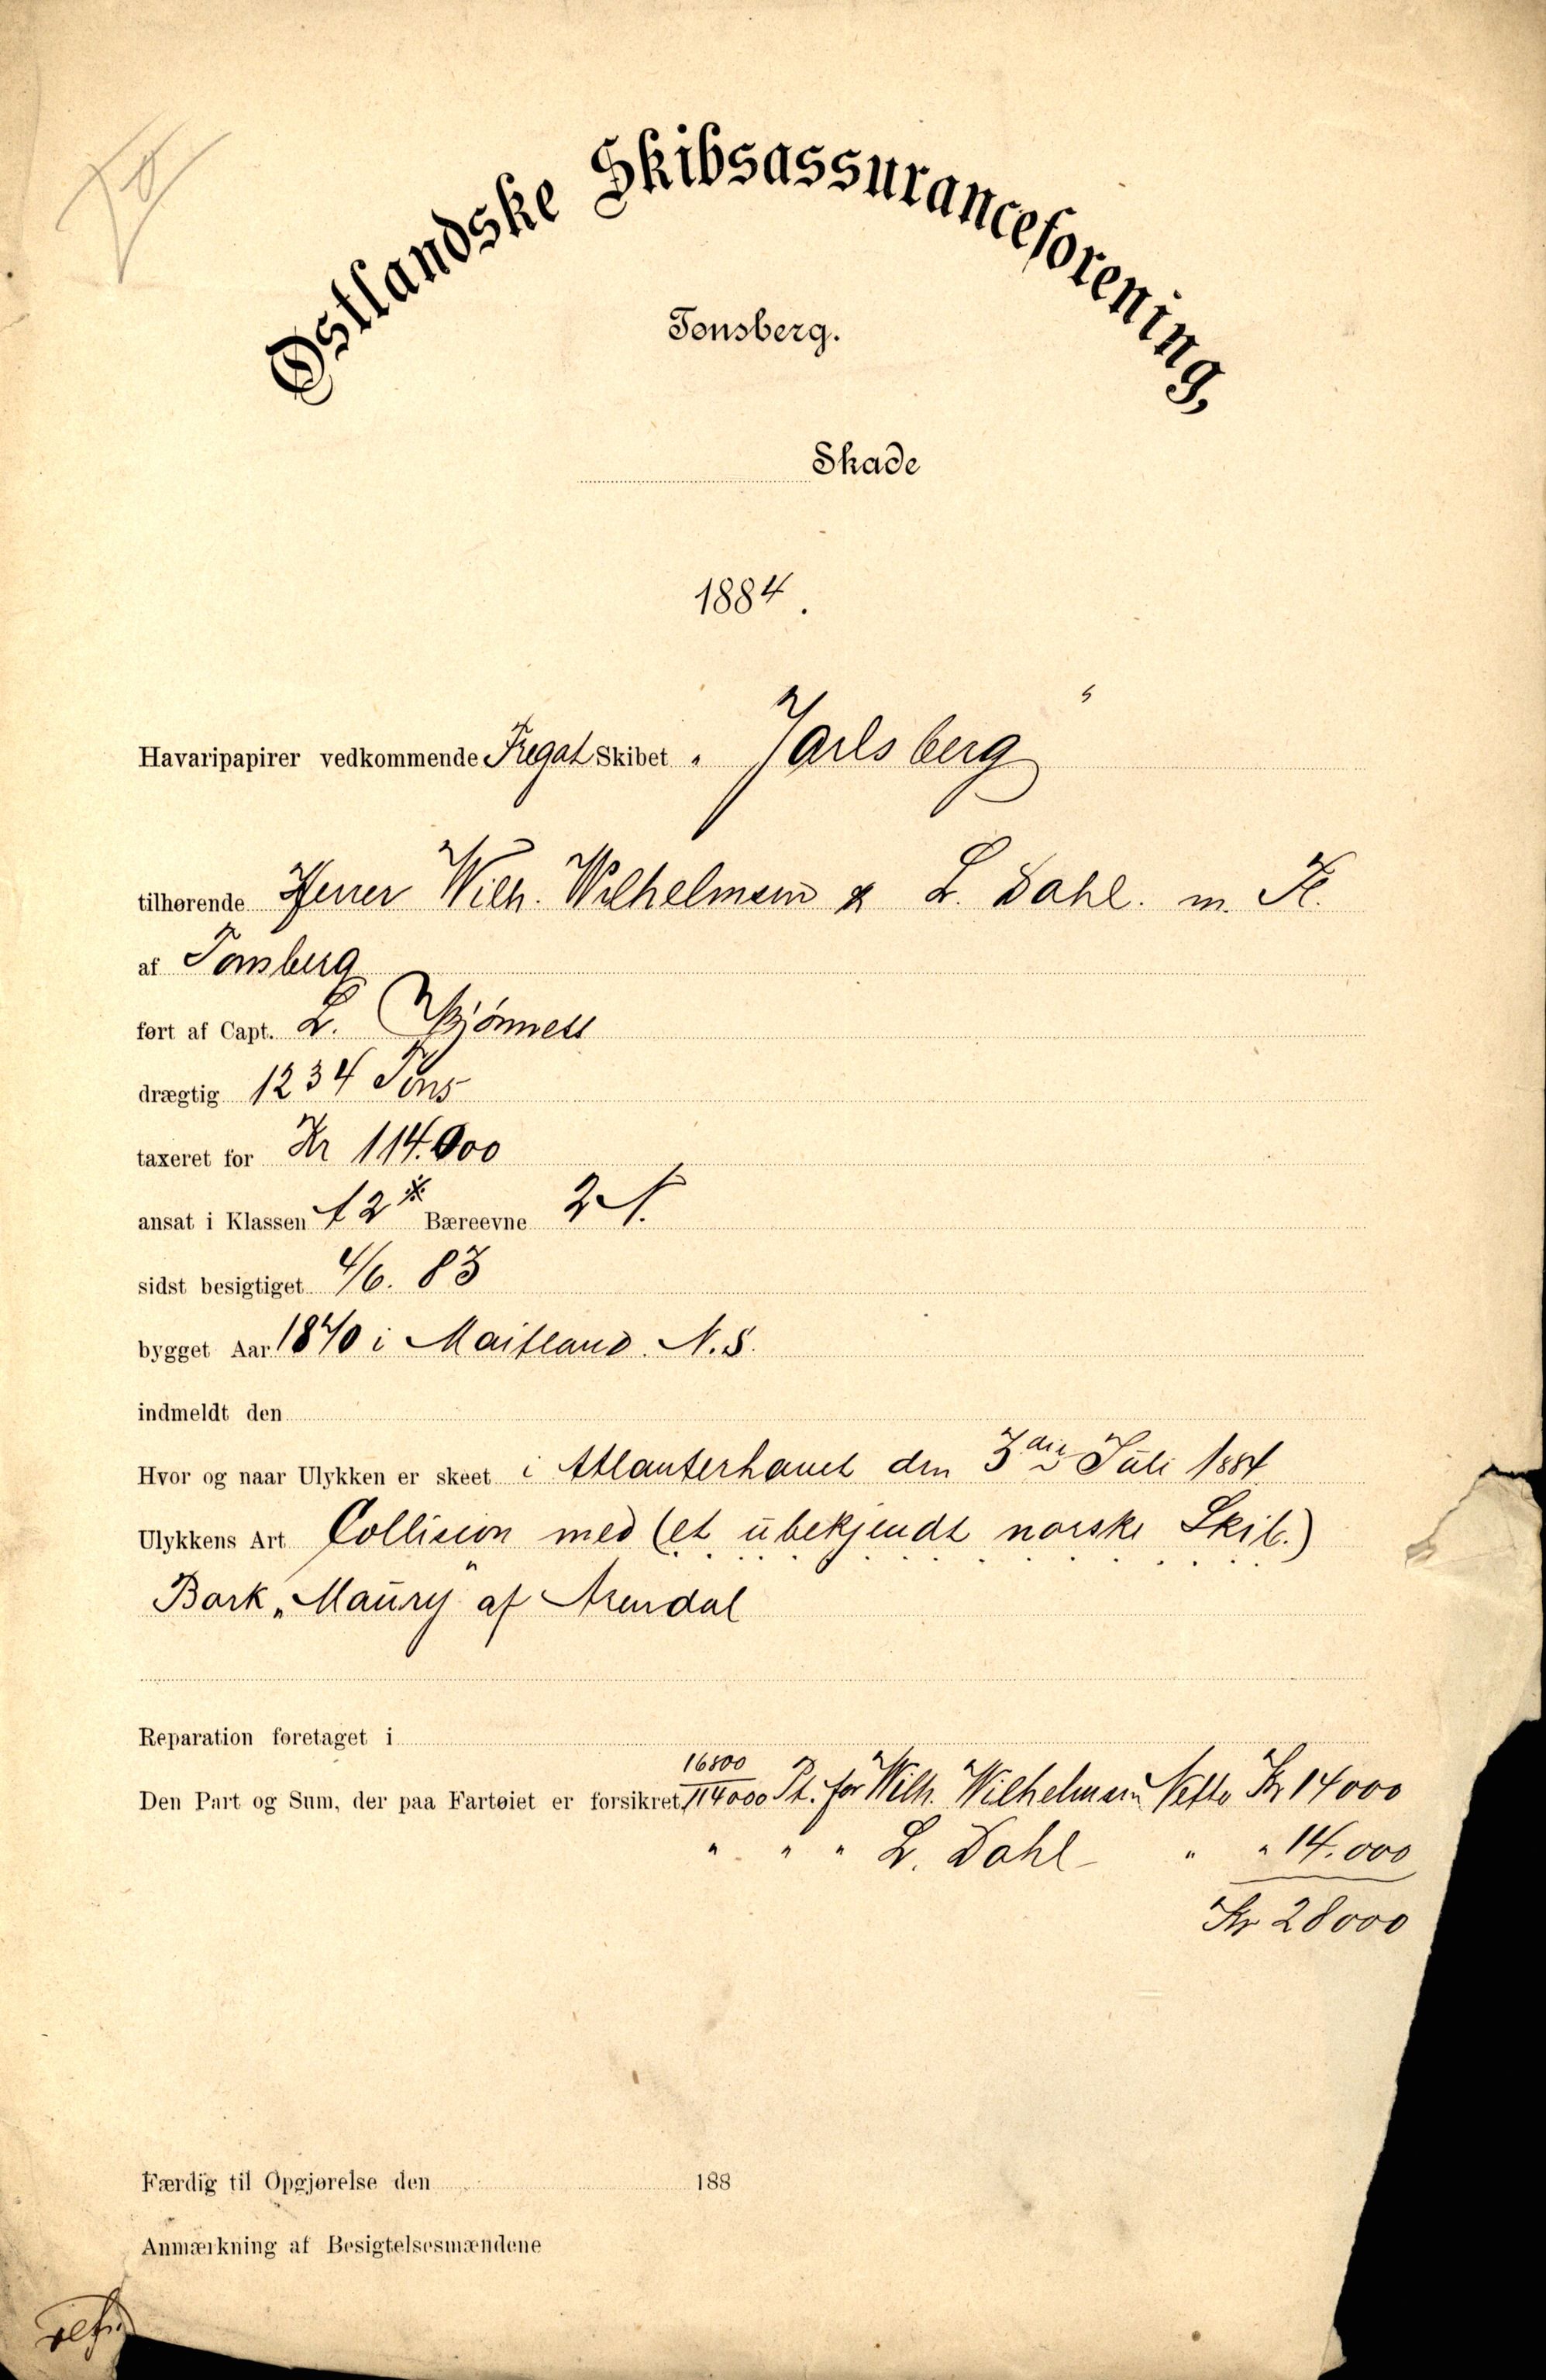 Østlandske Skibsassuranceforening,
Tønsberg.
Skade
1884.
Havaripapirer vedkommende Fregat Skibet „Jarlsberg"
tilhørende Herrer Wilh. Wilhelmsen & L. Dahl. m. Fl.
af Tønsberg
ført af Capt. L. Bjønness
drægtig 1234 Tons
taxeret for Kr 114.000
ansat i Klassen A2* Bæreevne
sidst besigtiget 4/6. 83
bygget Aar 1870 i Maitland. N.S.
indmeldt den
Hvor og naar Ulykken er skeet i Atlanterhavet den 3die Juli 1884
Ulykkens Art Collision med (et ubekjendt norske Skib.)
Bark „Maury" af Arendal
Reparation foretaget i
Den Part og Sum, der paa Fartøiet er forsikret 16800/114000 Pt. for Wilh. Wilhelmsen Netto Kr 14000
" " " L. Dahl " " 14.000
Kr 28000
Færdig til Opgjørelse den 188
Anmærkning af Besigtelsesmændene